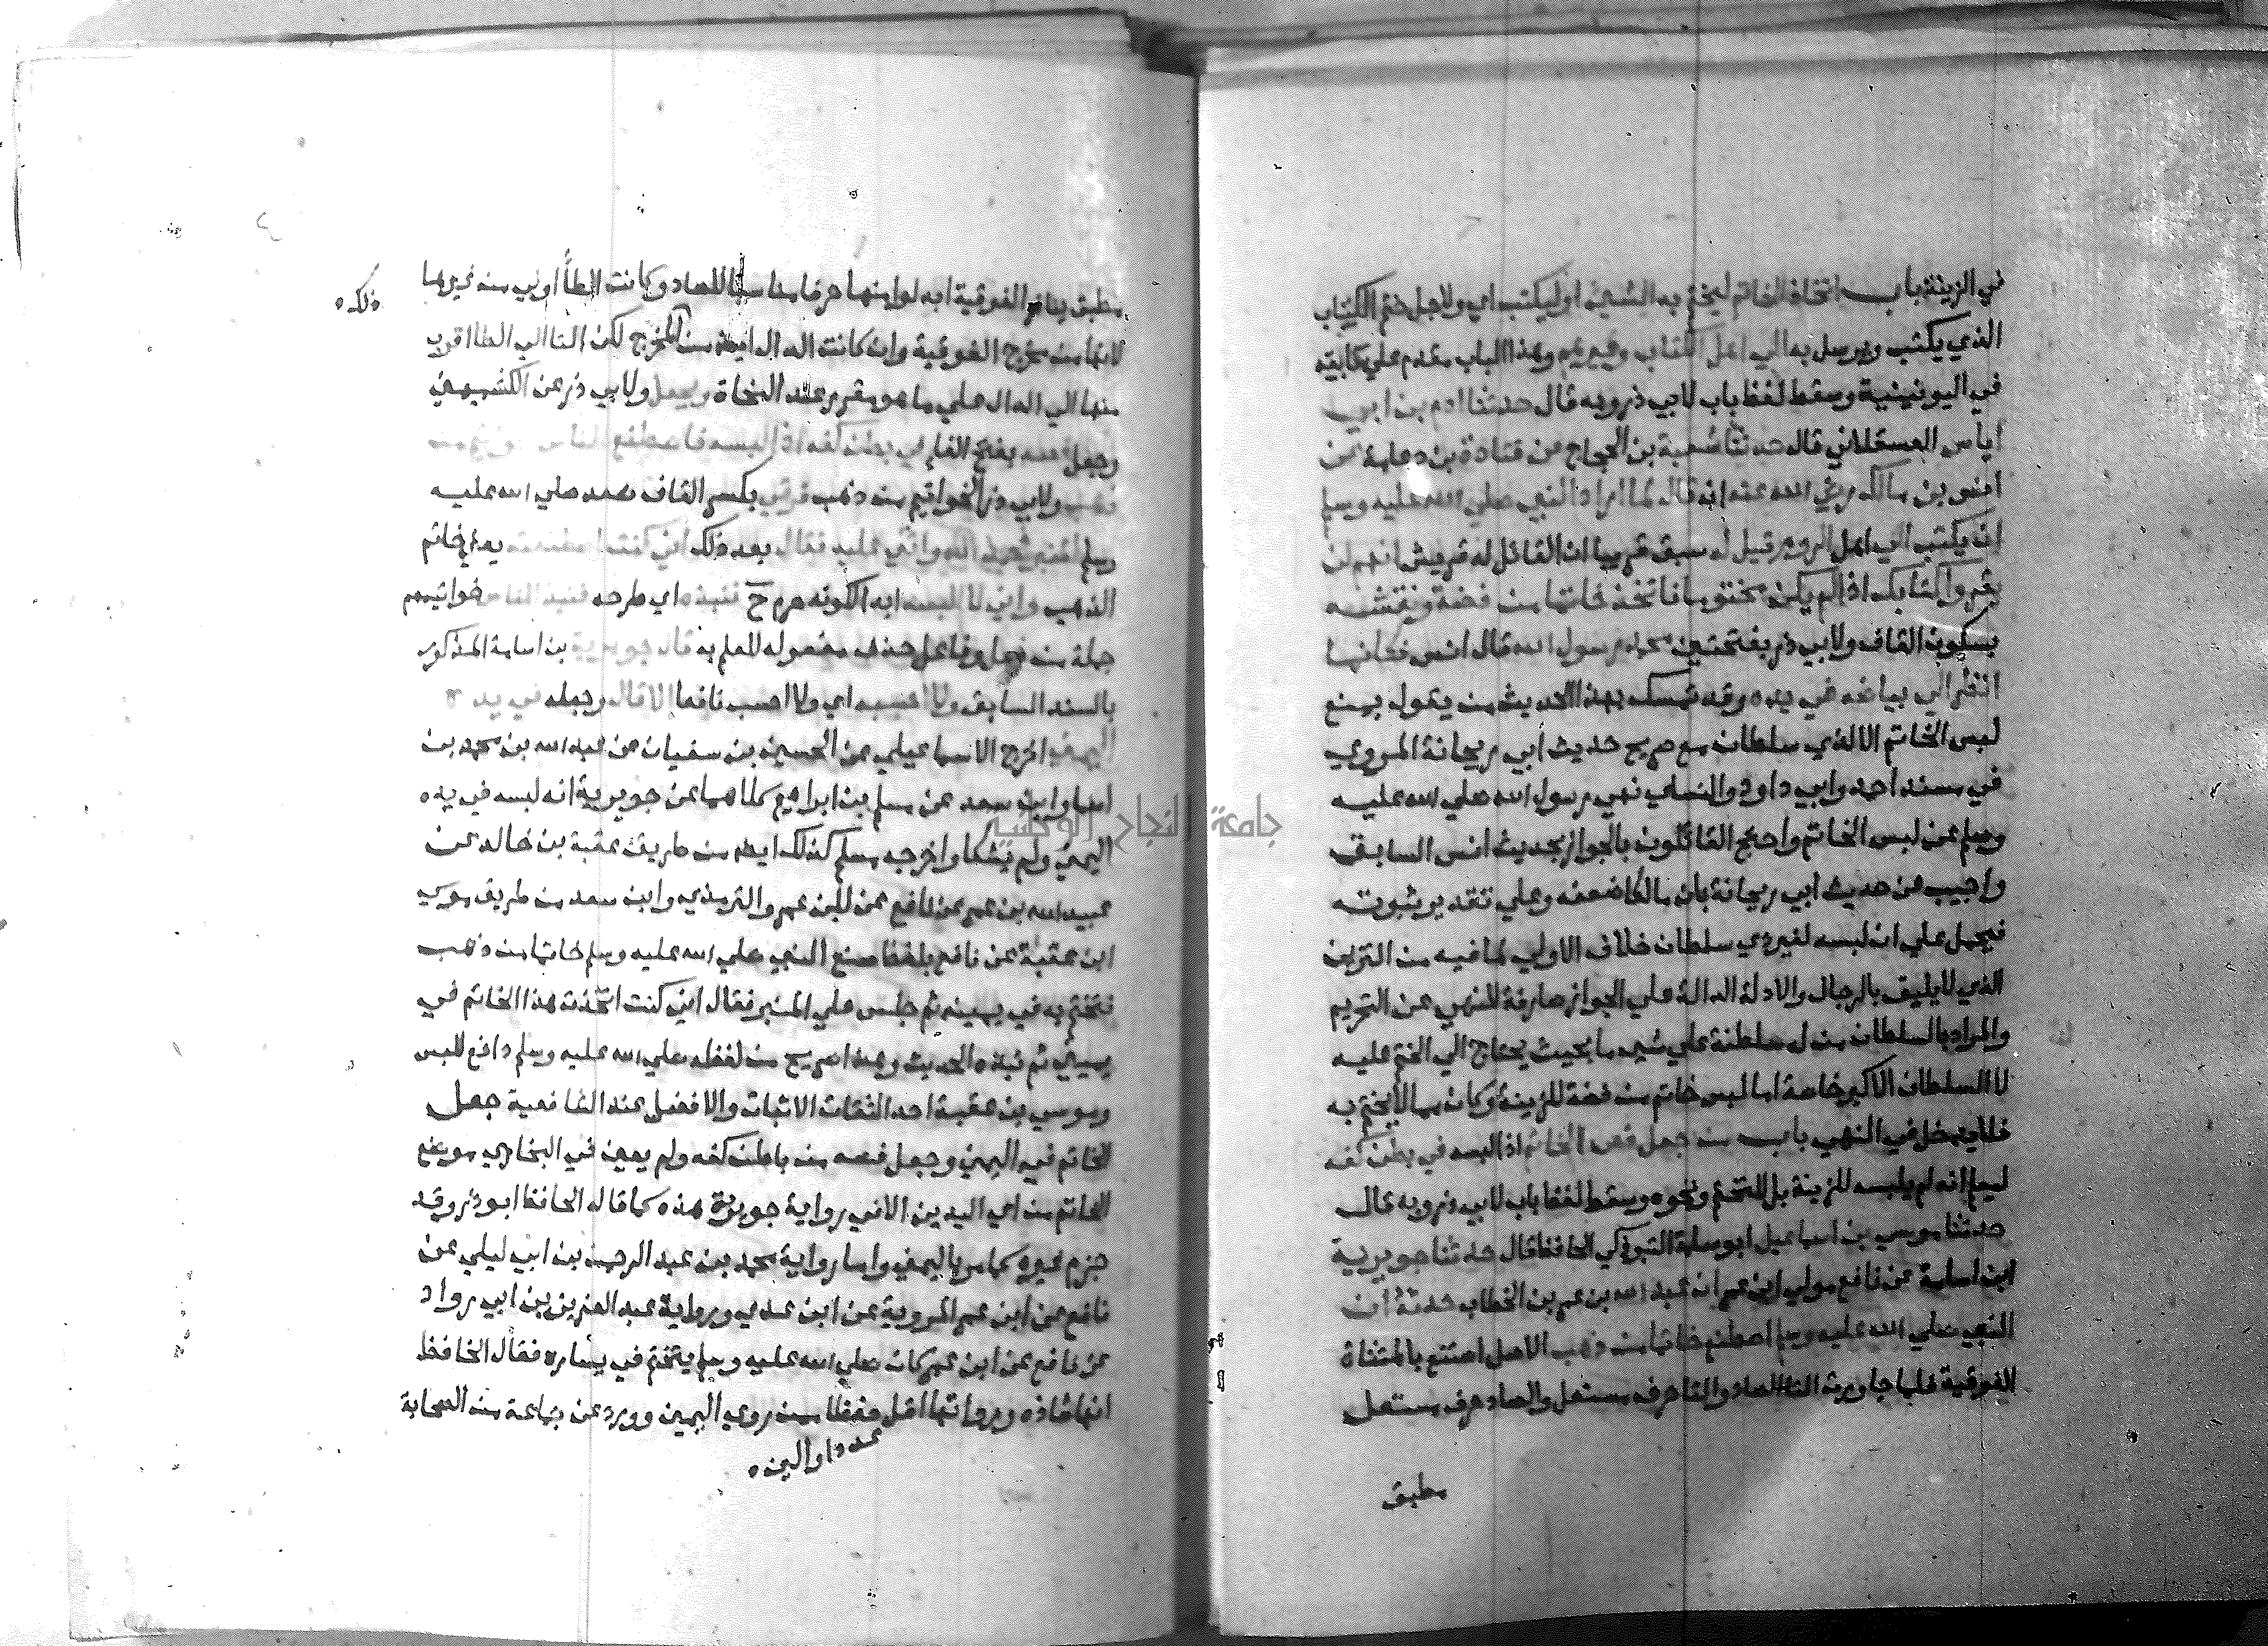 في الزينة باب اتخاذ الخاتم ليختم به الشيء او ليكتب اي ولاجل ختم الكتاب
الذي يكتب ويرسل به الي اهل الكتاب وغيرهم وهذا الباب مقدم علي تاليه
في اليونينية وسقط لفظ باب لابي ذر وبه قال حدثنا ادم بن ابي
اياس العسقلاني قال حدثنا شعبة بن الحجاج عن قتادة بن دعامة عن
انس بن مالك رضي الله عنه انه قال لما اراد النبي صلي الله عليه وسلم
ان يكتب الي اهل الروم قيل له سبق قريبا ان القائل له قريش انهم لن
يقروا كتابك اذا لم يكن مختوما فاتخذ خاتما من فضة ونقشه
بسكون القاف ولابي ذر بفتحتين محمد رسول الله قال انس فكانما
انظر الي بياضه في يده وقد تمسك بهذا الحديث من يقول بمنع
لبس الخاتم الا لذي سلطان مع صريح حديث أبي ريحانة المروي
في مسند احمد وابي داود والنسائي نهي رسول الله صلي الله عليه
وسلم عن لبس الخاتم واحتج القائلون بالجواز بحديث انس السابق
واجيب عن حديث ابي ريحانة بان مالكا ضعفه وعلي تقدير ثبوته
فيحمل علي ان لبسه لغير ذي سلطان خلاف الاولي لما فيه من التزين
الذي لا يليق بالرجال والادلة الدالة علي الجواز صارفة للنهي عن التحريم
والمراد بالسلطان من له سلطنة علي شيء ما بحيث يحتاج الي الختم عليه
لا السلطان الاكبر خاصة اما لبس خاتم من فضة للزينة وكان مما لا يختم به
فلا يدخل في النهي باب من جعل فص الخاتم اذا لبسه في بطن كفه
ليعلم انه لم يلبسه للزينة بل للختم ونحوه وسقط لفظ باب لابي ذر وبه قال
حدثنا موسي بن اسماعيل ابو سلمة التبوذكي الحافظ قال حدثنا جويرية
ابن اسامة عن نافع مولي ابن عمر ان عبد الله بن عمر بن الخطاب حدثه ان
النبي صلي الله عليه وسلم اصطنع خاتما من ذهب الاصل اصتنع بالمثناة
الفوقية فلما جاورت التا الصاد والتا حرف مستفل والصاد حرف مستعل
مطبق
مطبق ينافر الفوقية ابدلوا منها حرفا مناسبا للصاد وكانت الطأ اولي من غيرها
ذلك
لانها من مخرج الفوقية وان كانت الدال ايضا من المخرج لكن التا الي الطا اقرب
منها الي الدال علي ما هو مقرر عند النحاة ويجعل ولابي ذر عن الكشميهني
وجعل فصه بفتح الفاء في بطن كفه اذا لبسه فاصطنع الناس خواتيم من
ذهب ولابي ذر الخواتيم من ذهب فرقي بكسر القاف صعد صلي الله عليه
وسلم المنبر فحمد الله واثني عليه فقال بعد ذلك اني كنت اصطنعته يعني خاتم
الذهب واني لا البسه ابدا لكونه حرم ح فنبذه اي طرحه فنبذ الناس خواتيمهم
جملة من فعل وفاعل حذف مفعوله للعلم به قال جويرية بن اسامة المذكور
بالسند السابق ولا احسبه اي ولا احسب نافعا الا قال وجعله في يده
اليمني اخرج الاسماعيلي عن الحسين بن سفيان عن عبد الله بن محمد بن
اسما وابن سعد عن مسلم بن ابراهيم كلاهما عن جويرية انه لبسه في يده
اليمني ولم يشكا واخرجه مسلم كذلك ايضا من طريق عقبة بن خالد عن
عبيد الله بن عمر عن نافع عن ابن عمر والترمذي وابن سعد من طريق موسي
ابن عقبة عن نافع بلفظ صنع النبي صلي الله عليه وسلم خاتما من ذهب
فتختم به في يمينه ثم جلس علي المنبر فقال اني كنت اتخذت هذا الخاتم في
يميني ثم نبذه الحديث وهذا صريح من لفظه صلي الله عليه وسلم دافع للبس
وموسي بن عقبة احد الثقات الاثبات والافضل عند الشافعية جعل
الخاتم في اليمني وجعل فصه من باطن كفه ولم يعين في البخاري موضع
الخاتم من اي اليدين الا في رواية جويرية هذه كما قاله الحافظ ابو ذر وقد
جزم غيره كما مر باليمني واما رواية محمد بن عبد الرحمن بن ابي ليلي عن
نافع عن ابن عمر المروية عن ابن عدي ورواية عبد العزيز بن ابي رواد
عن نافع عن ابن عمر كان صلي الله عليه وسلم يتختم في يساره فقال الحافظ
انها شاذه ورواتها اقل حفظا ممن روي اليمين وورد عن جماعة من الصحابة
جامعة النجاح الوطنية